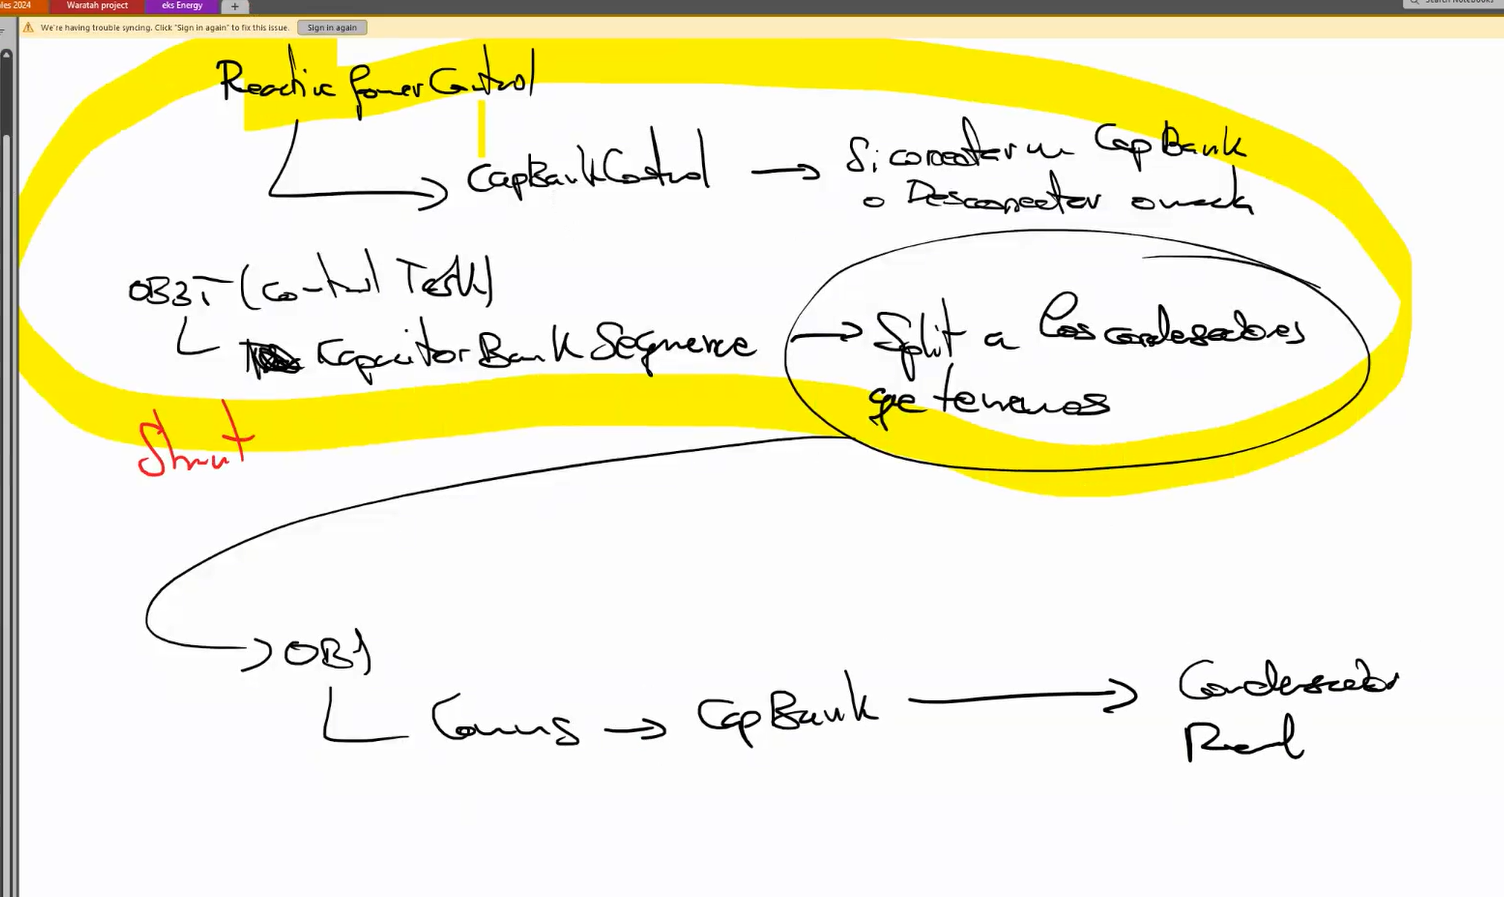 les 2024
Waratah project
eks Energy
+
Search Notebooks
We're having trouble syncing. Click "Sign in again" to fix this issue.
Sign in again
Reactive Power Control
CapBankControl → Si conectar un CapBank
o Desconectar
(Control Task)
Capacitor Bank Sequence → Split a los condesadores
que tenemos
Shunt
OB1
Comms → CapBank → Condensador
Real